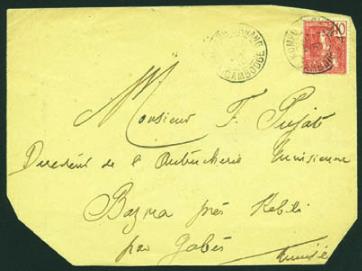 CAMBODGE
10
Monsieur F. Pujat
Directeur de l'Autrucherie tunisienne
Bazma près Kebili
par Gabès
Tunisie